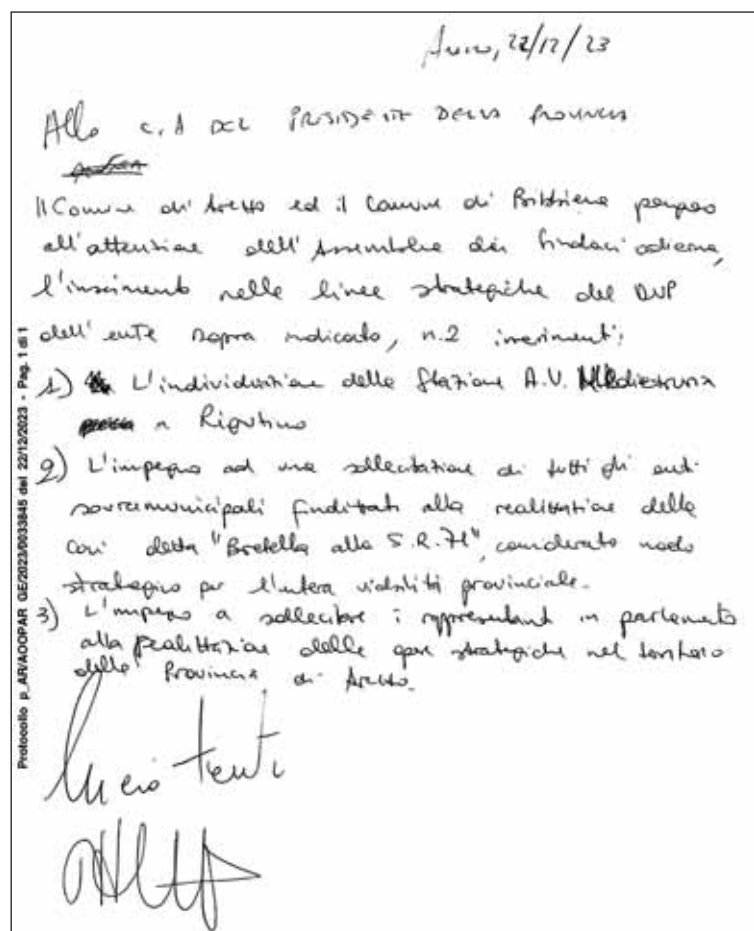 Arezzo, 22/12/23
Alla C.A DEL PRESIDENTE DELLA PROVINCIA
Il Comune di Arezzo ed il Comune di Bibbiena pongono
all'attenzione dell'Assemblea dei Sindaci odierna,
l'inserimento nelle linee strategiche del DUP
dell'ente sopra indicato, n.2 inserimenti:
1) L'individuazione della Stazione A.V. Medioetruria
a Rigutino
2) L'impegno ad una sollecitazione di tutti gli enti
sovracomunali finalizzati alla realizzazione della
così detta "Bretella alla S.R.71", considerato nodo
strategico per l'intera viabilità provinciale.
3) L'impegno a sollecitare i rappresentanti in parlamento
alla realizzazione delle opere strategiche nel territorio
della Provincia di Arezzo.
Protocollo p_AR/AOOPAR GE/2023/0033845 del 22/12/2023 - Pag. 1 di 1